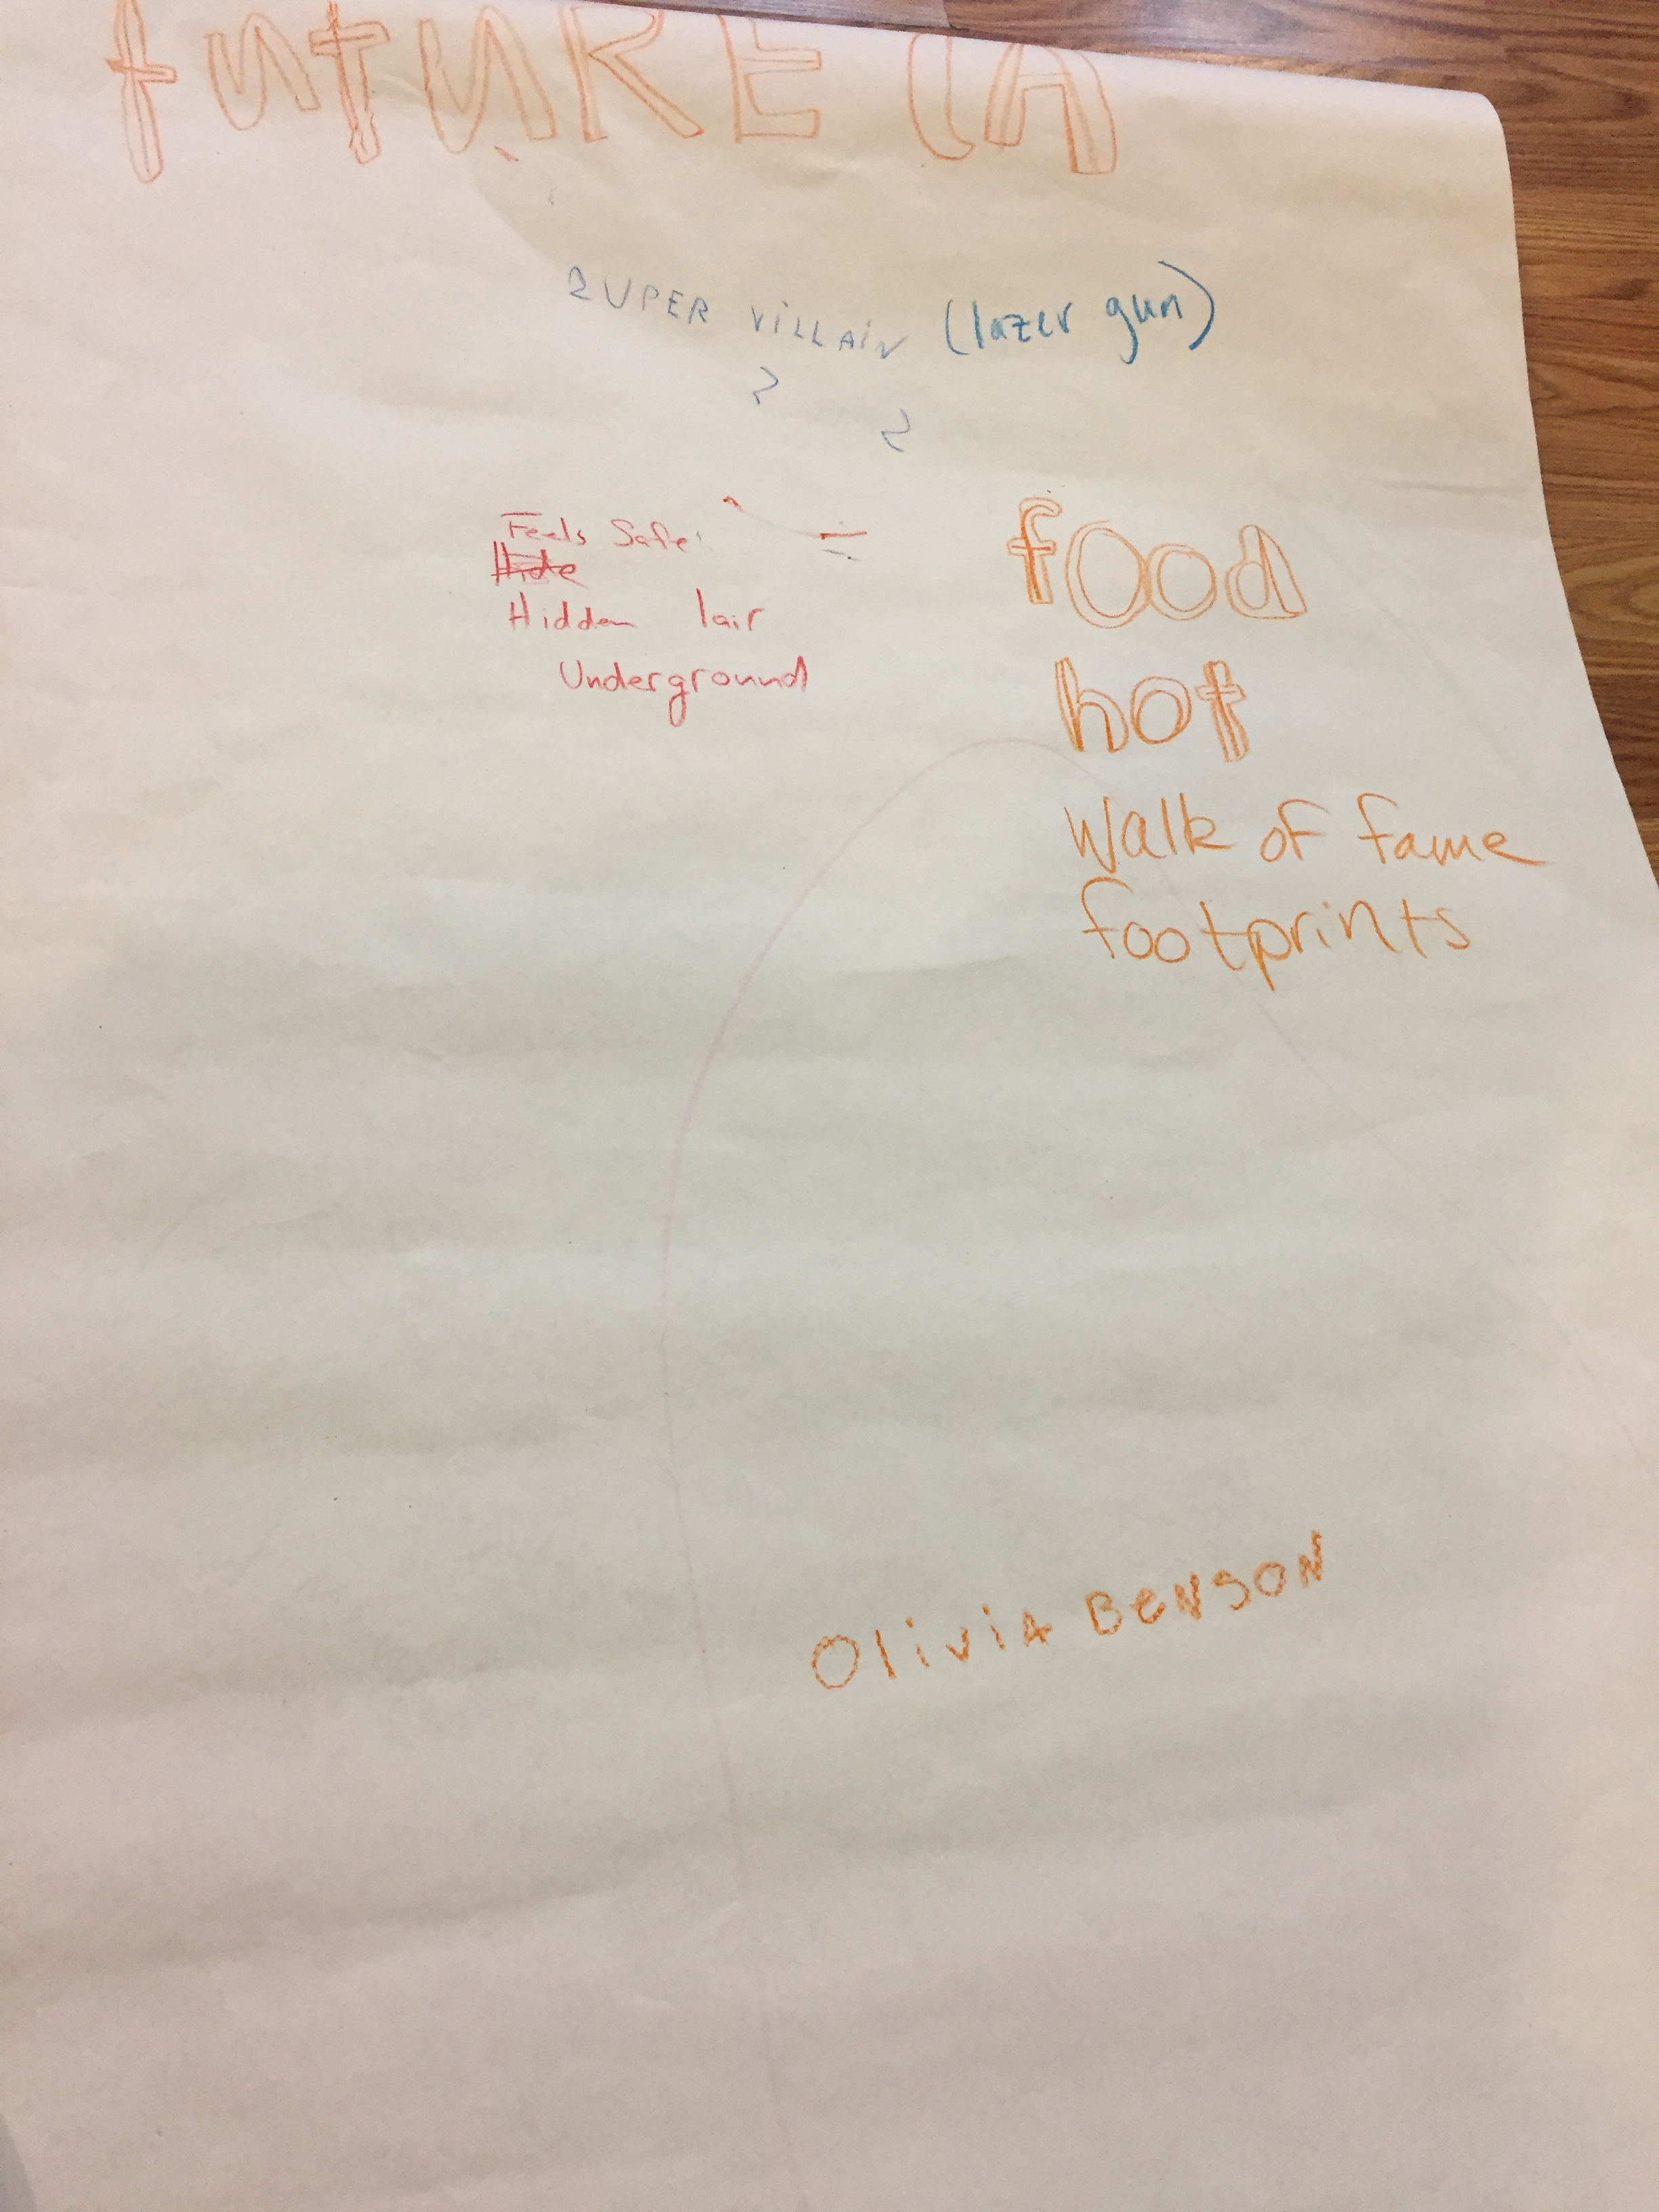 fUTURE LA
SUPER ViLLAiN (lazer gun)
Feels Safe
Hide
Hidden lair
Underground
food
hot
Walk of fame
footprints
OliviA BeNSON